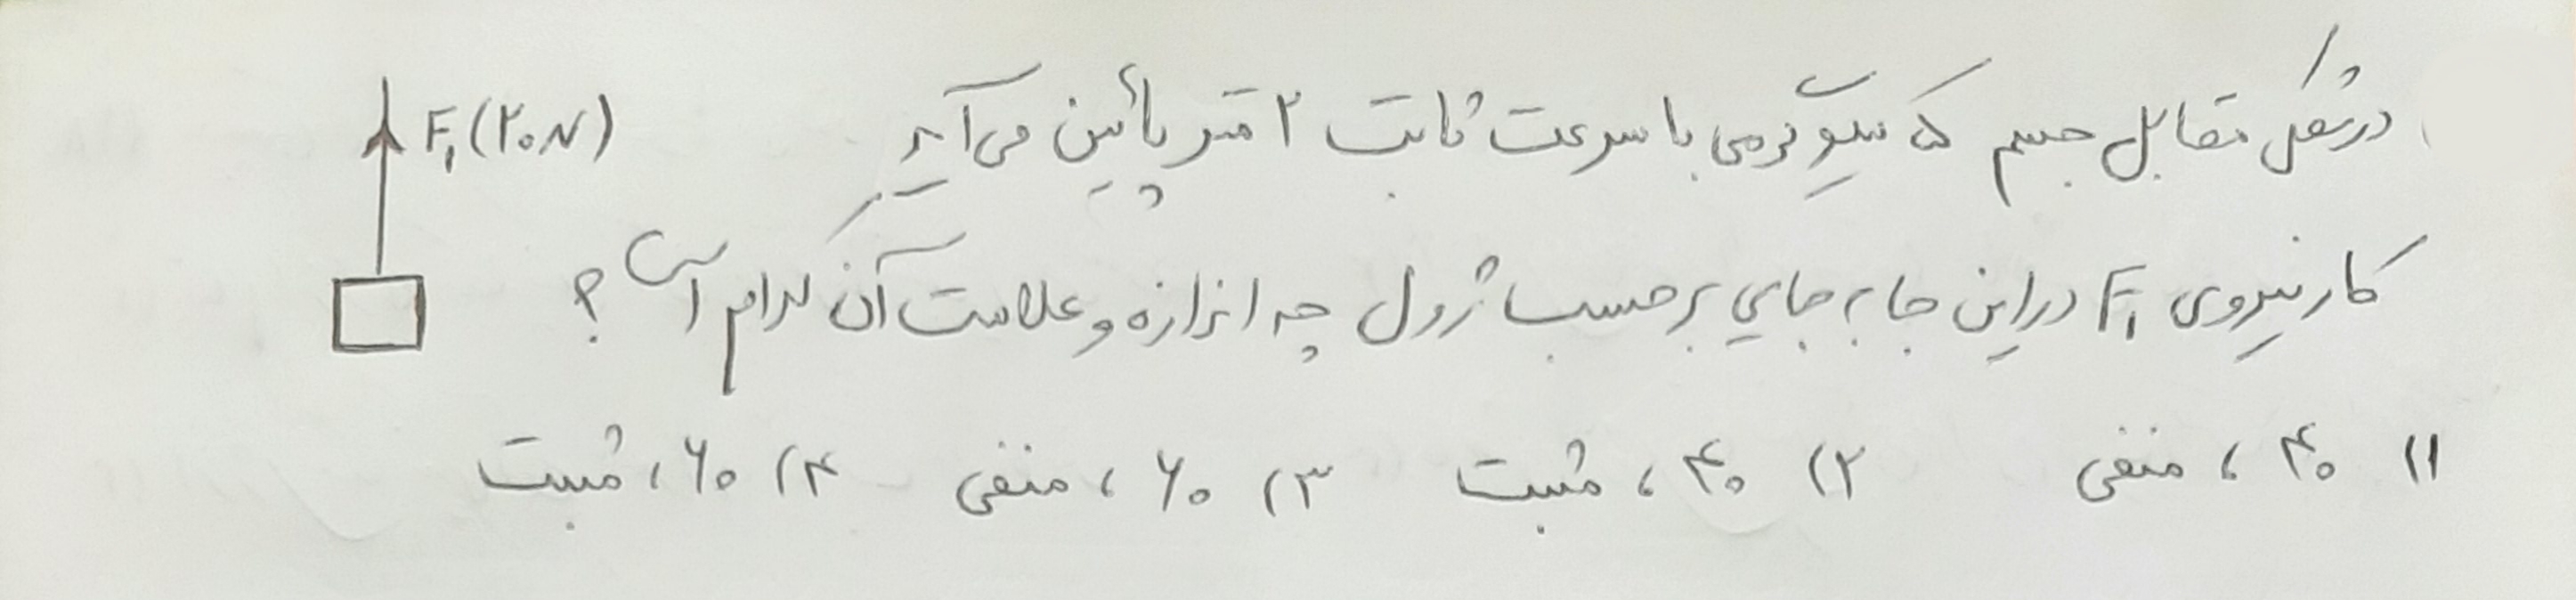 در شکل مقابل جسم ۵ کیلوگرمی با سرعت ثابت ۲ متر پائین می‌آید
F₁(۲۰N)
کار نیروی F₁ در این جا به جایی بر حسب ژول چه اندازه و علامت آن کدام است؟
۱) ۴۰ ، منفی ۲) ۴۰ ، مثبت ۳) ۶۰ ، منفی ۴) ۶۰ ، مثبت